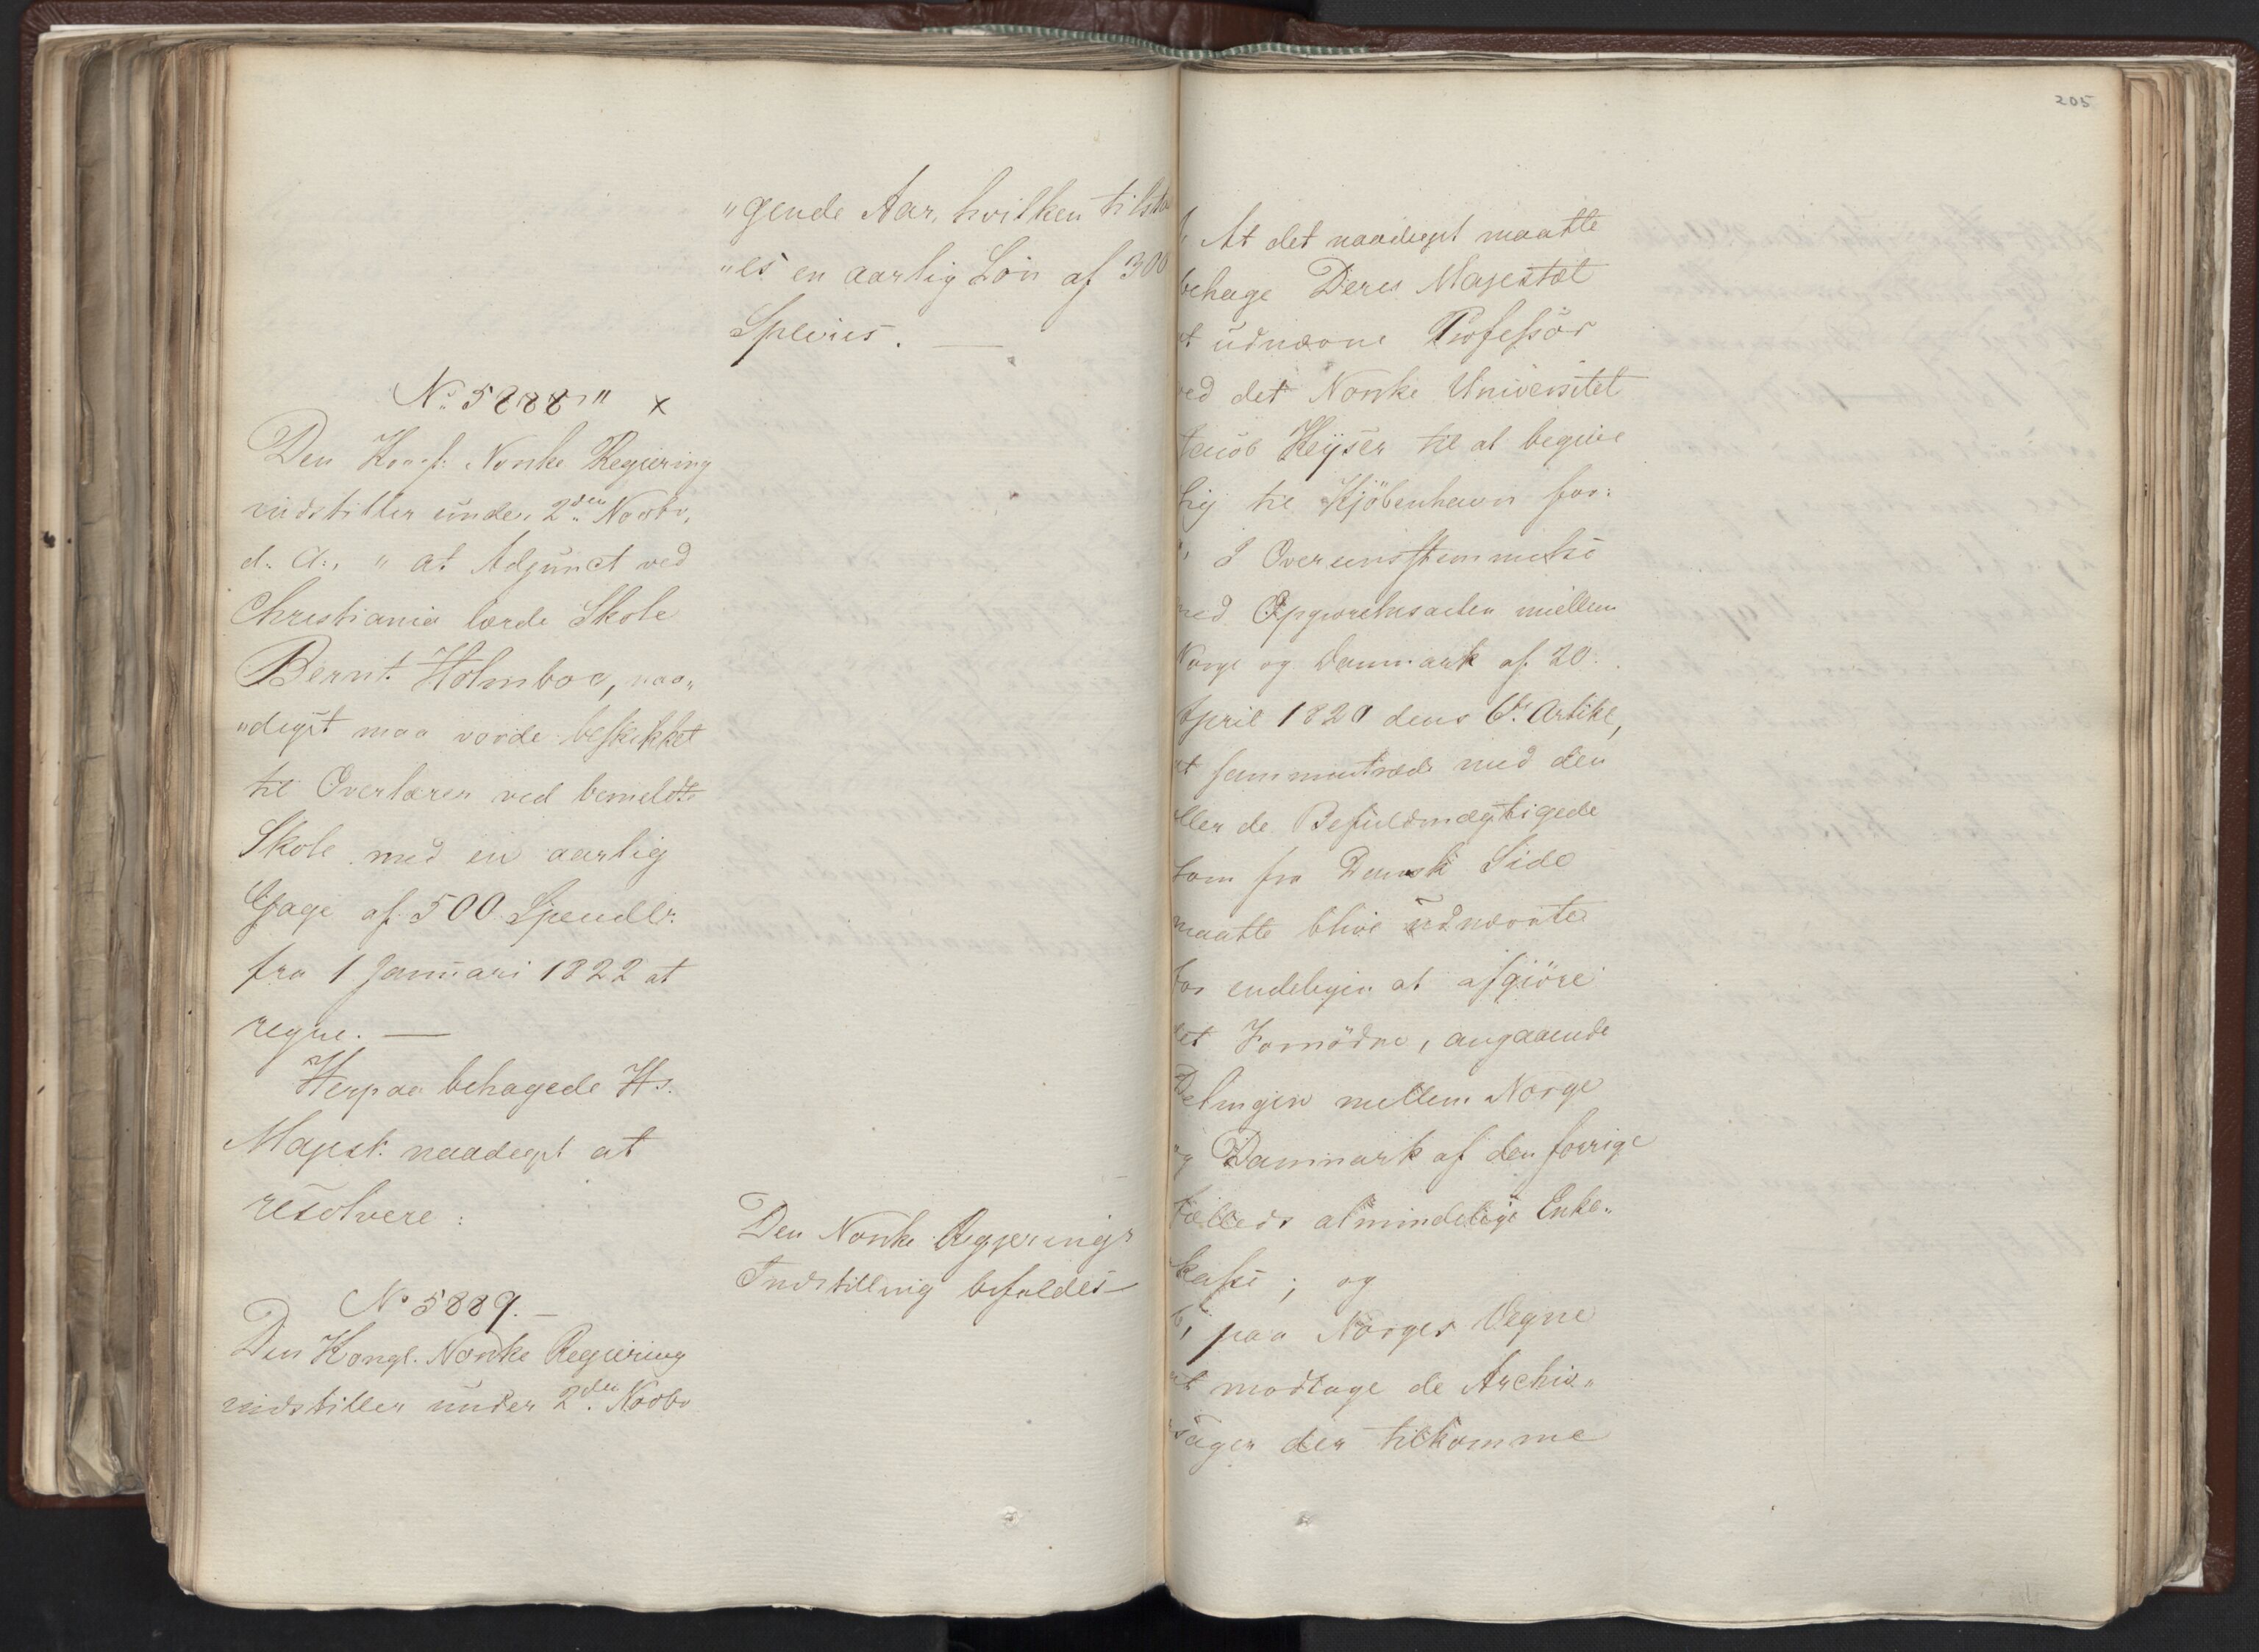 „gende Aar, hvilken tilsta
„es en aarlig Lön af 300
Species. —
No. 5888" x
Den Kongl: Norske Regiering
indstiller under 2den Novbr,
d. A:, „at Adjunct ved
Christiania lærde Skole
Bernt Holmboe, naa„
„digst maa vorde beskikket
til Overlærer ved bemeldte
Skole med en aarlig
Gage af 500 Speudlr:
fra 1 Januari 1822 at
regne. —
Herpaa behagede Hs.
Majest: naadigst at
resolvere:
Den Norske Regjerings
Indstilling bifaldes —
No 5889. —
Den Kongl. Norske Regiering
indstiller under 2den Novbr
205
At det naadigst maatte
behage Deres Majestæt
at udnævne Professor
ved det Norske Universitet
Jacob Keyser til at begive
sig til Kjöbenhavn for:
I Overeensstemmelse
med Opgiørelsesacten mellem
Norge og Danmark af 20.
April 1820 dens 6te Artikel,
at sammentræde med den
eller de Befuldmægtigede
som fra Dansk Side
maatte blive udnævnte
for endeligen at afgiöre
det Fornödne, angaaende
Delingen mellem Norge
og Danmark af den forrige
fælleds almindelige Enke„
kasse; og
paa Norges Vegne
at modtage de Archiv„
sager der tilkomme